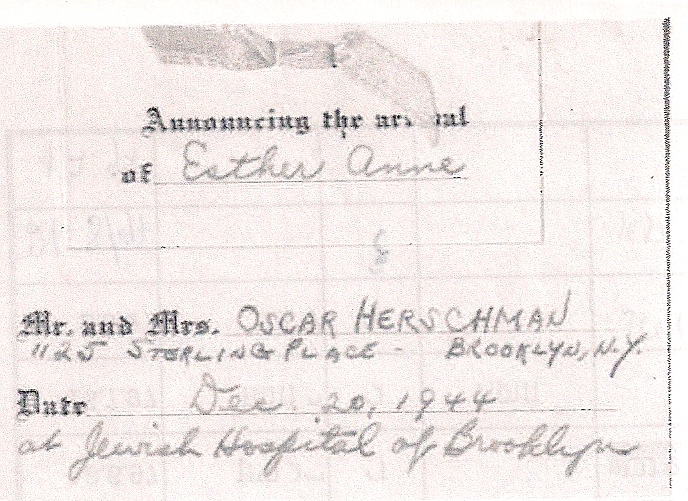 Announcing the arrival
of Esther Anne
Mr. and Mrs. OSCAR HERSCHMAN
1125 STERLING PLACE - BROOKLYN, N.Y.
Date Dec. 20, 1944
at Jewish Hospital of Brooklyn